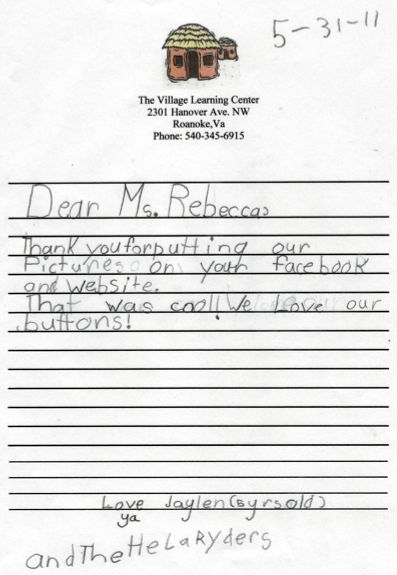 5-31-11
The Village Learning Center
2301 Hanover Ave. NW
Roanoke,Va
Phone: 540-345-6915
Dear Ms. Rebecca,
Thank you for putting our
Pictures on your facebook
and website.
That was cool! We Love our
buttons!
Love Jaylen (8 yrs old)
ya
and The HeLa Ryders